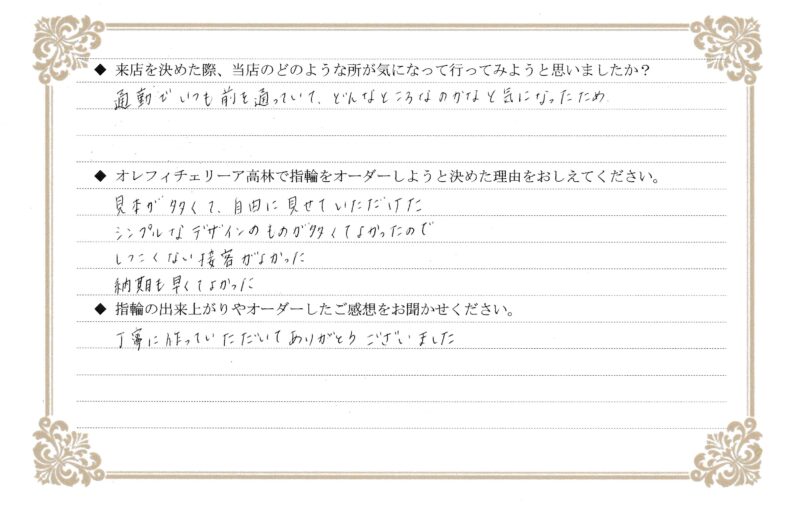 ◆ 来店を決めた際、当店のどのような所が気になって行ってみようと思いましたか？
通勤でいつも前を通っていて、どんなところなのかなと気になったため
◆ オレフィチェリーア高林で指輪をオーダーしようと決めた理由をおしえてください。
見本が多くて、自由に見せていただけた
シンプルなデザインのものが多くてよかったので
しつこくない接客がよかった
納期も早くてよかった
◆ 指輪の出来上がりやオーダーしたご感想をお聞かせください。
丁寧に作っていただいてありがとうございました